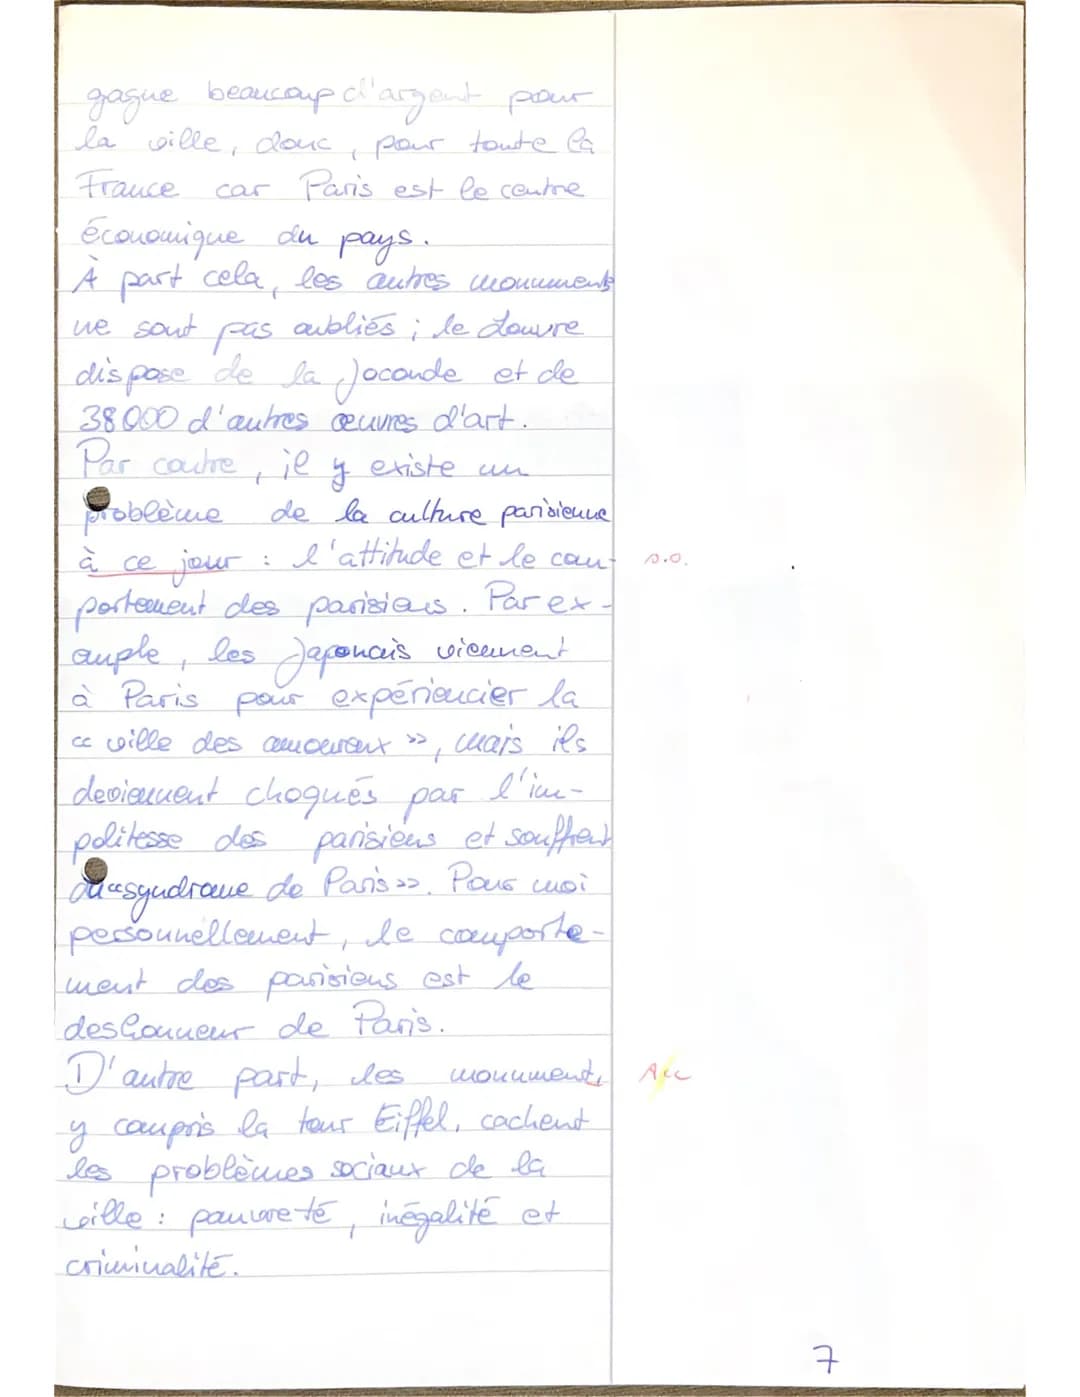 gagne beaucoup d'argent pour
la ville, donc, pour toute la
France car Paris est le centre
économique du pays.
À part cela, les autres monuments
ne sont pas oubliés ; le Louvre
dispose de la Joconde et de
38000 d'autres œuvres d'art.
Par contre, il y existe un
problème de la culture parisienne
à ce jour : l'attitude et le com- s.o.
portement des parisiens. Par ex-
emple, les Japonais viennent
à Paris pour expériencier la
« ville des amoureux », mais ils
deviennent choqués par l'im-
politesse des parisiens et souffrent
du «syndrome de Paris». Pour moi
personnellement, le comporte-
ment des parisiens est le
deshonneur de Paris.
D'autre part, les monuments,
y compris la tour Eiffel, cachent
les problèmes sociaux de la
ville : pauvreté, inégalité et
criminalité.
7